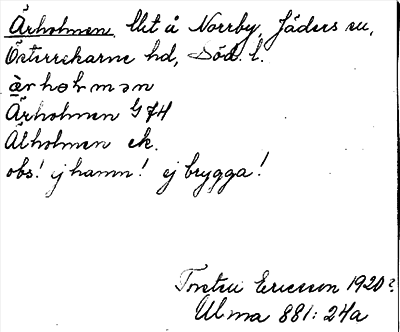 Ärholmen, lht å Norrby, Jäders sn,
Österrekarne hd, Söd. l.
ä̀rhɷlmən
Ärholmen G 74
Alholmen ek.
obs! ej hamn! ej brygga!
Torsten Ericsson 1920?
Ulma 881:24a